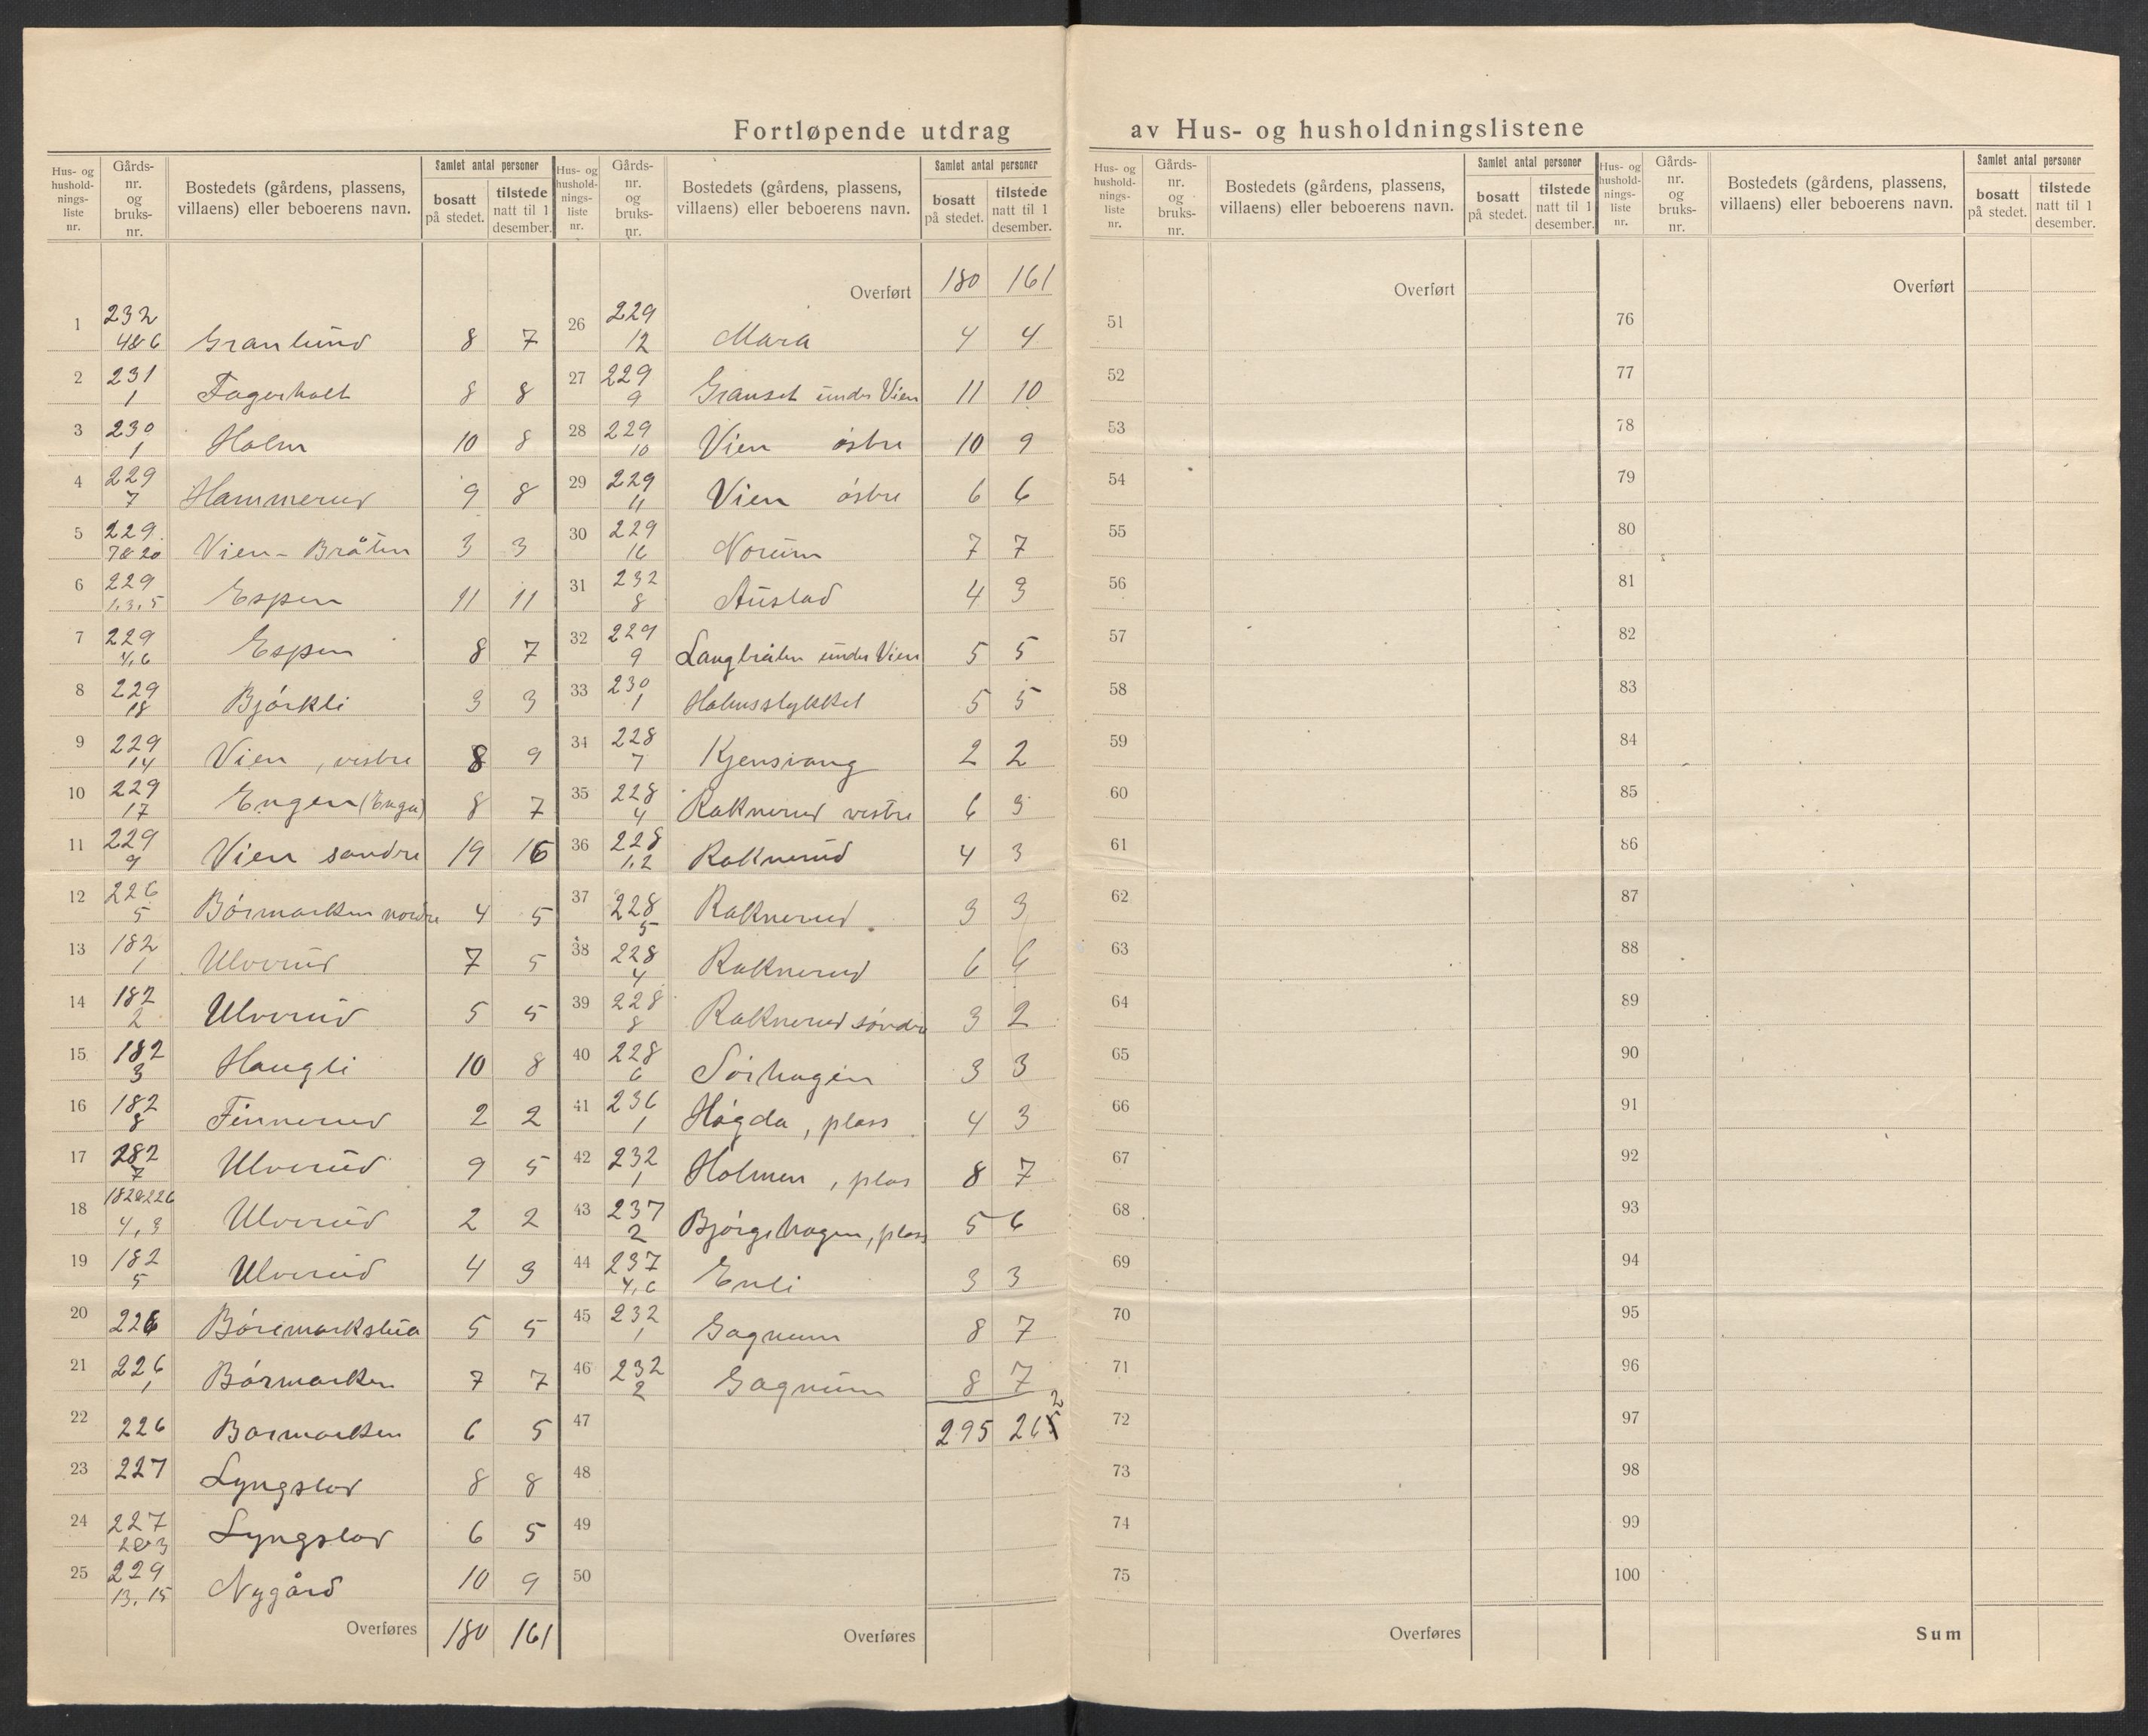 Fortløpende utdrag av Hus- og husholdningslistene
Hus- og hushold-nings-liste nr. | Gårds-nr. og bruks-nr. | Bostedets (gårdens, plassens, villaens) eller beboerens navn. | Samlet antal personer | bosatt på stedet. | tilstede natt til 1 desember.
1 | 232 4&6 | Granlund | 8 | 7
2 | 231 1 | Fagerholt | 8 | 8
3 | 230 1 | Holm | 10 | 8
4 | 229 7 | Hammerud | 9 | 8
5 | 229 7&20 | Vien-Bråten | 3 | 3
6 | 229 1,3,5 | Espen | 11 | 11
7 | 229 4,6 | Espen | 8 | 7
8 | 229 18 | Bjørkli | 3 | 3
9 | 229 14 | Vien, vestre | 8 | 9
10 | 229 17 | Engen (Enga) | 8 | 7
11 | 229 9 | Vien søndre | 19 | 16
12 | 226 5 | Børmarken nordre | 4 | 5
13 | 182 1 | Ulverud | 7 | 5
14 | 182 2 | Ulverud | 5 | 5
15 | 182 3 | Haugli | 10 | 8
16 | 182 8 | Finnerud | 2 | 2
17 | 282 7 | Ulverud | 9 | 5
18 | 182&226 4,3 | Ulverud | 2 | 2
19 | 182 5 | Ulverud | 4 | 3
20 | 226 | Børemarkstua | 5 | 5
21 | 226 1 | Børmarken | 7 | 7
22 | 226 | Børmarken | 6 | 5
23 | 227 | Lyngslov | 8 | 8
24 | 227 2&3 | Lyngslov | 6 | 5
25 | 229 13,15 | Nygård | 10 | 9
Overføres | 180 | 161
Hus- og hushold-nings-liste nr. | Gårds-nr. og bruks-nr. | Bostedets (gårdens, plassens, villaens) eller beboerens navn. | Samlet antal personer | bosatt på stedet. | tilstede natt til 1 desember.
Overført | 180 | 161
26 | 229 12 | Mara | 4 | 4
27 | 229 9 | Granset under Vien | 11 | 10
28 | 229 10 | Vien østre | 10 | 9
29 | 229 11 | Vien østre | 6 | 6
30 | 229 16 | Norum | 7 | 7
31 | 232 8 | Austad | 4 | 3
32 | 229 9 | Langbråten under Vien | 5 | 5
33 | 230 1 | Holmsstykket | 5 | 5
34 | 228 7 | Kjensvang | 2 | 2
35 | 228 4 | Raknerud vestre | 6 | 3
36 | 228 1,2 | Raknerud | 4 | 3
37 | 228 5 | Raknerud | 3 | 3
38 | 228 4 | Raknerud | 6 | 6
39 | 228 8 | Raknerud søndre | 3 | 2
40 | 228 6 | Sørhagen | 3 | 3
41 | 236 1 | Høgda, plass | 4 | 3
42 | 232 1 | Holmen, plas | 8 | 7
43 | 237 2 | Bjørgehagen, plass | 5 | 6
44 | 237 4,6 | Enli | 3 | 3
45 | 232 1 | Gagnum | 8 | 7
46 | 232 2 | Gagnum | 8 | 7
47 | 295 | 265 2
48
49
50
Overføres
Hus- og hushold-nings-liste nr. | Gårds-nr. og bruks-nr. | Bostedets (gårdens, plassens, villaens) eller beboerens navn. | Samlet antal personer | bosatt på stedet. | tilstede natt til 1 desember.
Overført
51
52
53
54
55
56
57
58
59
60
61
62
63
64
65
66
67
68
69
70
71
72
73
74
75
Overføres
Hus- og hushold-nings-liste nr. | Gårds-nr. og bruks-nr. | Bostedets (gårdens, plassens, villaens) eller beboerens navn. | Samlet antal personer | bosatt på stedet. | tilstede natt til 1 desember.
Overført
76
77
78
79
80
81
82
83
84
85
86
87
88
89
90
91
92
93
94
95
96
97
98
99
100
Sum